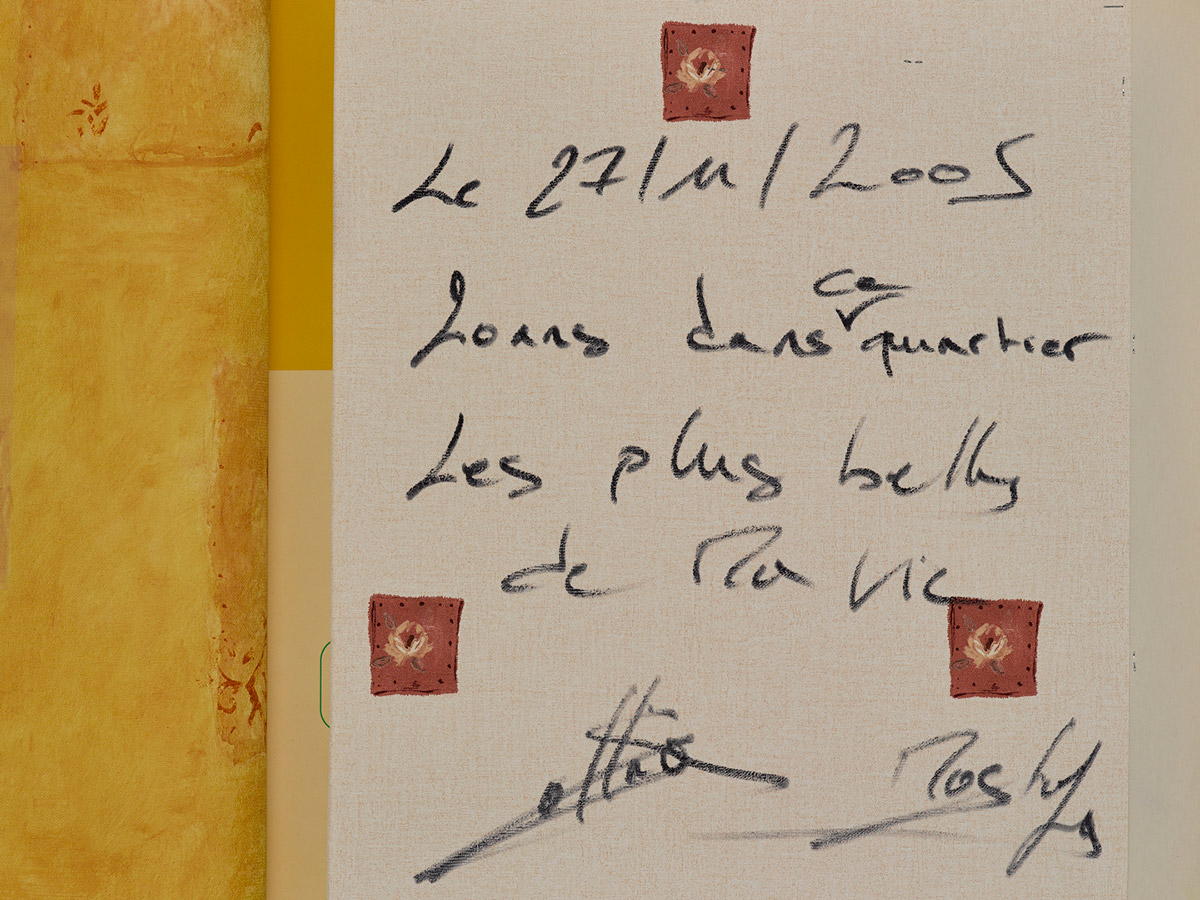 Le 27/11/2005
20ans dans ce quartier
Les plus belles
de Ma Vie